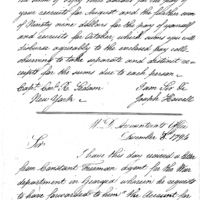 your recruits for August and the further sum
of Ninety nine dollars for the pay of yourself
and recruits for October, which sums you will
disburse agreeably to the enclosed pay rolls
observing to take separate and distinct re-
ceipts for the sums due to each person.
I am Sir &c
New York
Joseph Howell
Accountants Office
December 1792
Sir
I have this day received a letter
from Constant Freeman Agent for the War
department in Georgia wherein he requests
to have forwarded to him the Account for